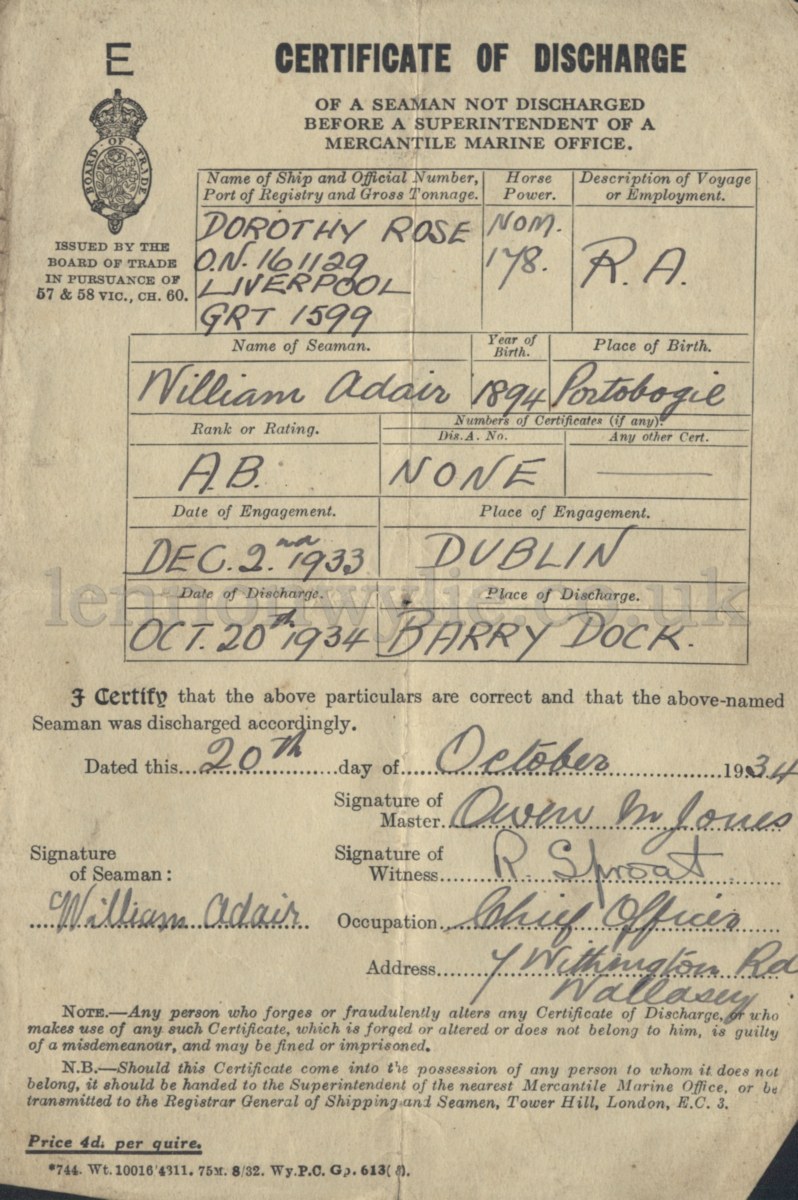 E
CERTIFICATE OF DISCHARGE
OF A SEAMAN NOT DISCHARGED
BEFORE A SUPERINTENDENT OF A
MERCANTILE MARINE OFFICE.
BOARD OF TRADE
ISSUED BY THE
BOARD OF TRADE
IN PURSUANCE OF
57 & 58 VIC., CH. 60.
Name of Ship and Official Number,
Port of Registry and Gross Tonnage.
Horse
Power.
Description of Voyage
or Employment.
DOROTHY ROSE
O.N. 161129
LIVERPOOL
GRT 1599
NOM.
178.
R.A.
Name of Seaman.
Year of
Birth.
Place of Birth.
William Adair
1894
Portobogie
Rank or Rating.
Numbers of Certificates (if any).
Dis.A. No.
Any other Cert.
A.B.
NONE
Date of Engagement.
Place of Engagement.
DEC. 2nd 1933
DUBLIN
Date of Discharge.
Place of Discharge.
OCT. 20th 1934
BARRY DOCK.
lennonwylie.co.uk
I Certify that the above particulars are correct and that the above-named
Seaman was discharged accordingly.
Dated this 20th day of October 1934
Signature of
Master. Owen M Jones
Signature
of Seaman:
William Adair
Signature of
Witness R. Sproat
Occupation Chief Officer
Address 7 Withington Rd
Wallasey
NOTE.—Any person who forges or fraudulently alters any Certificate of Discharge, or who
makes use of any such Certificate, which is forged or altered or does not belong to him, is guilty
of a misdemeanour, and may be fined or imprisoned.
N.B.—Should this Certificate come into the possession of any person to whom it does not
belong, it should be handed to the Superintendent of the nearest Mercantile Marine Office, or be
transmitted to the Registrar General of Shipping and Seamen, Tower Hill, London, E.C. 3.
Price 4d. per quire.
*744. Wt. 10016/4311. 75M. 8/32. Wy.P.C. Gp. 613